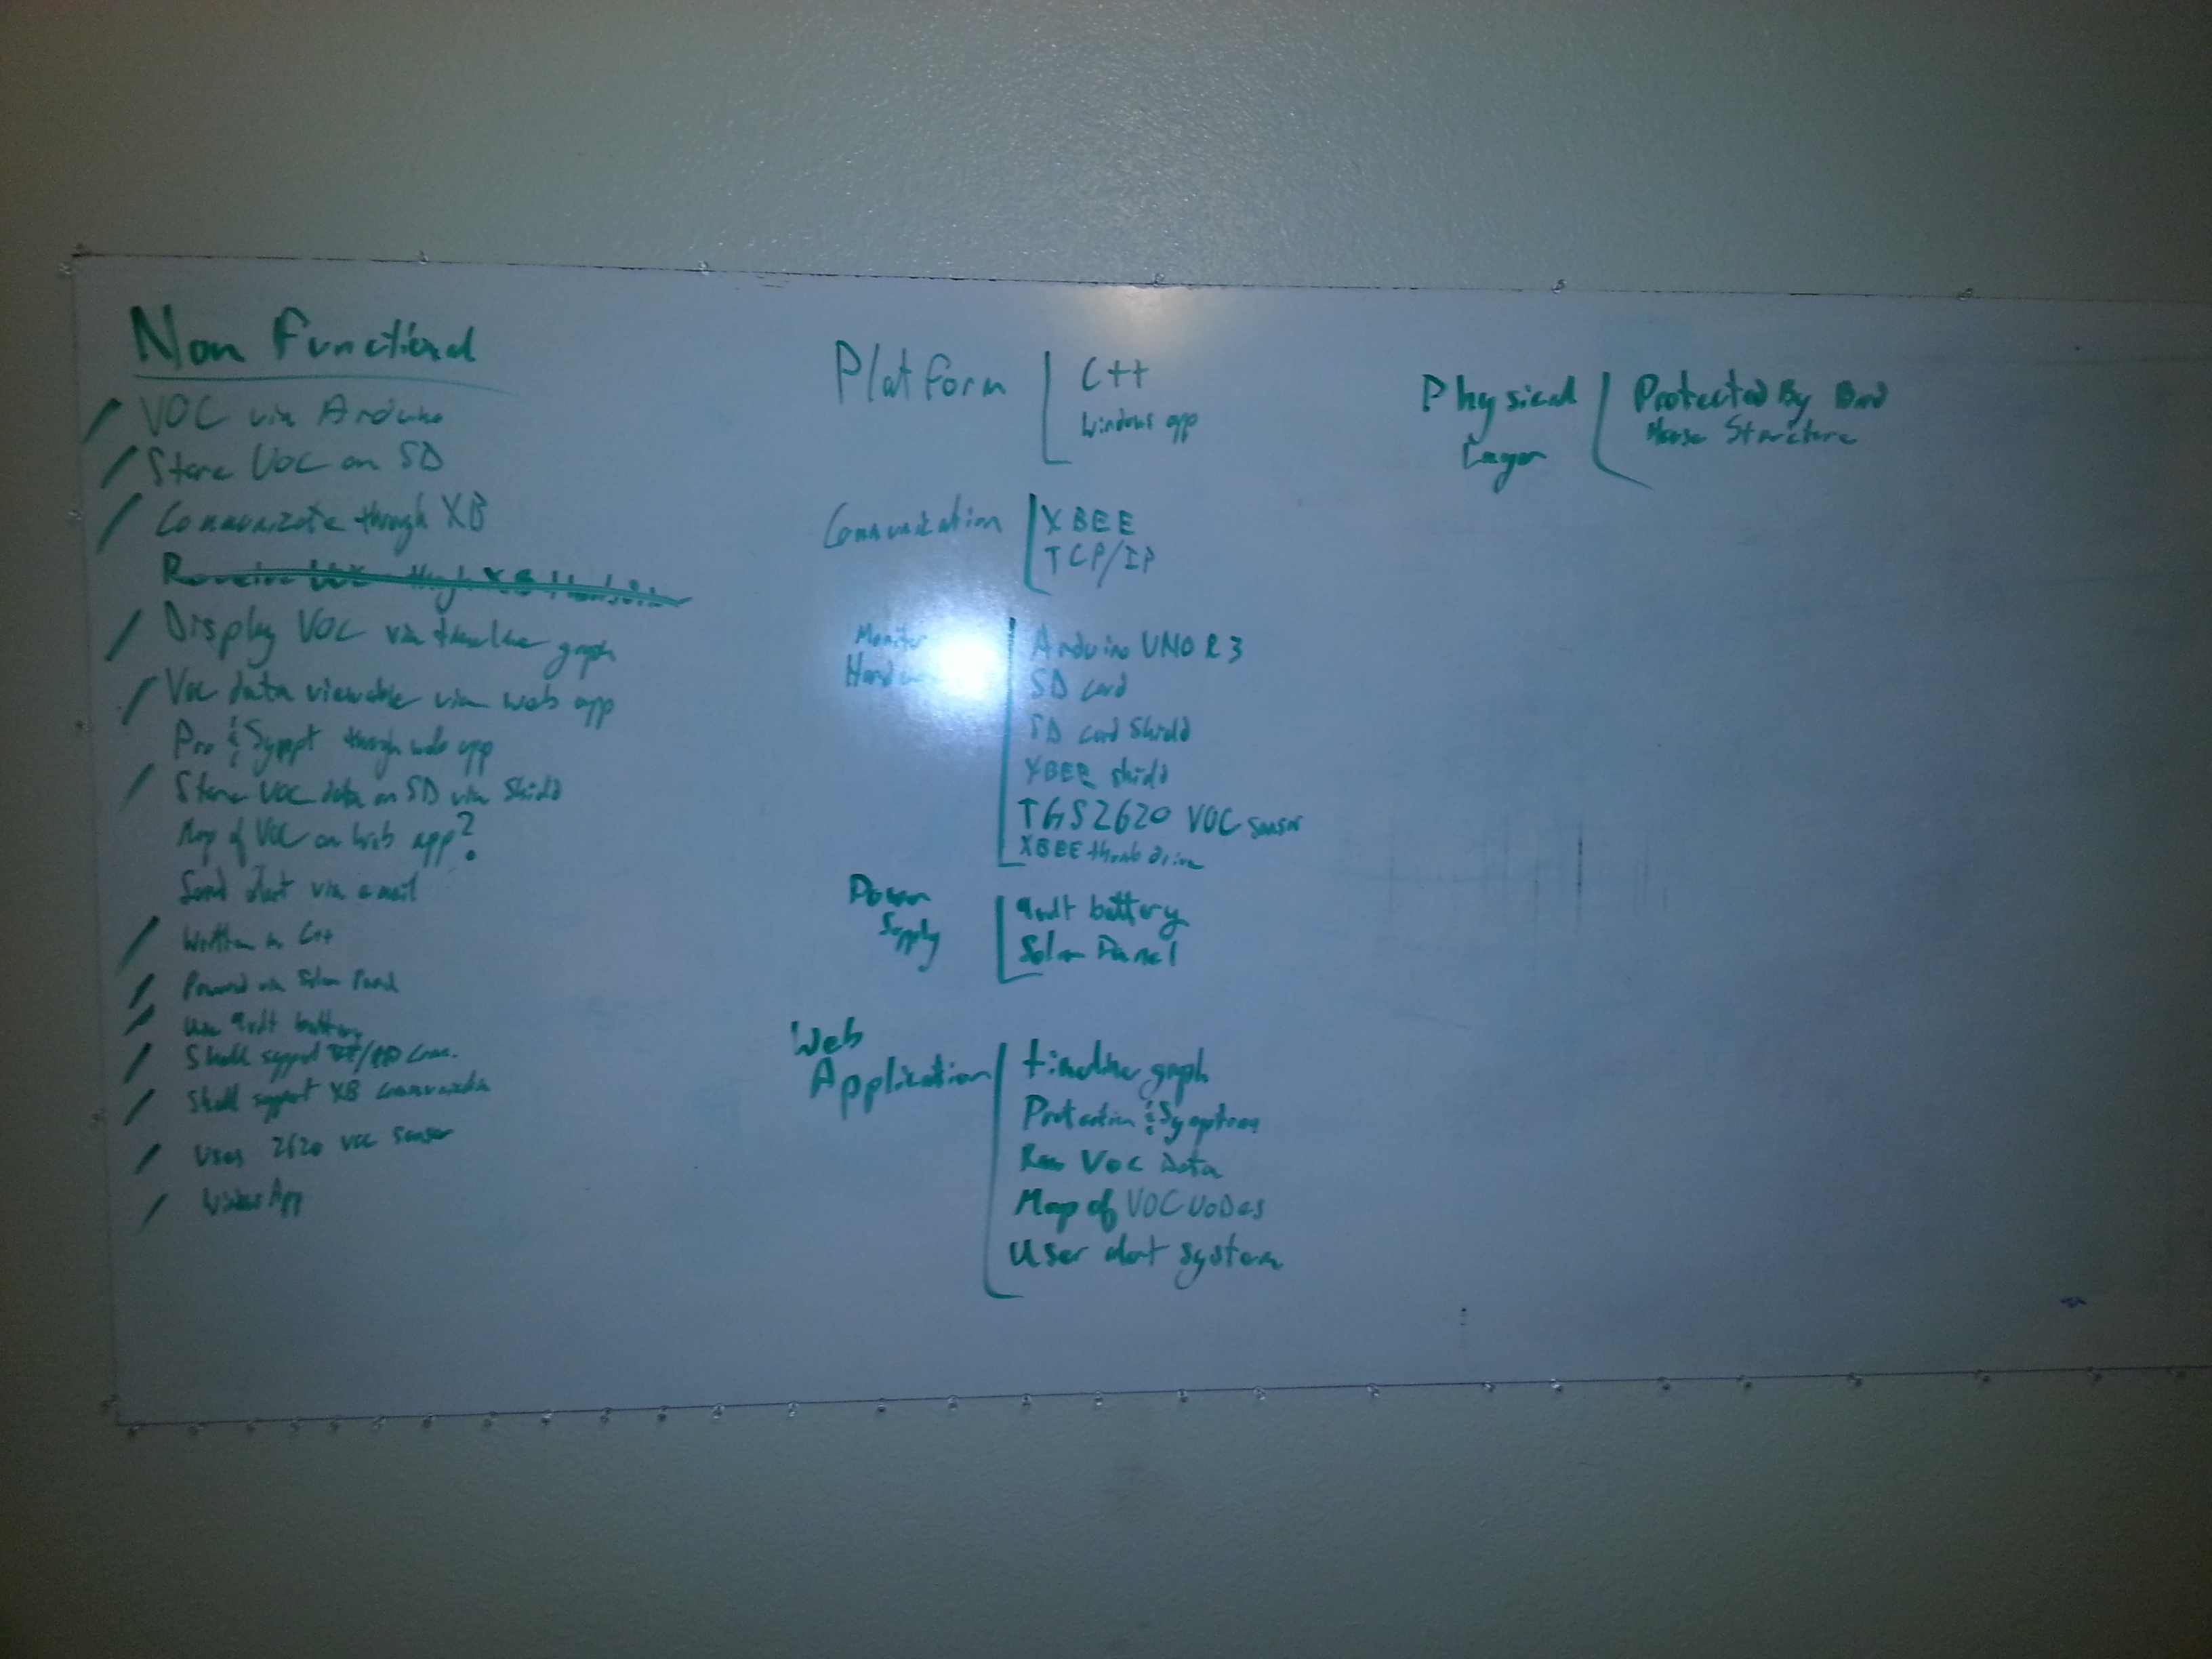 Non Functional
VOC via Arduino
Store VOC on SD
Communicate through XB
Display VOC via timeline graph
Voc data viewable via web app
Pro & Sympt through web app
Store VOC data on SD via Shield
Map of VOC on web app?
Send alert via email
Written in C++
Powered via Solar Panel
Use 9volt battery
Shall support
Shall support XB Communication
Uses 2620 VOC sensor
Windows App
Platform
C++
Windows app
Communication
XBEE
TCP/IP
Monitor
Arduino UNO R3
SD card
SD card Shield
XBEE shield
TGS2620 VOC sensor
XBEE thumb drive
Power
Supply
9volt battery
Solar Panel
Web
Application
timeline graph
Protection & Symptoms
Raw VOC Data
Map of VOC NoDes
User alert system
Physical
Layer
Protected By Bird
House Structure